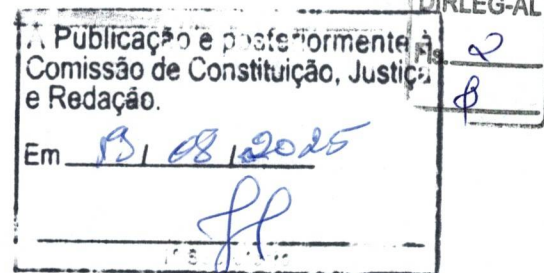 DIRLEG-AL
Fls. 2
À Publicação e posteriormente à
Comissão de Constituição, Justiça
e Redação.
Em 19 / 08 / 2025